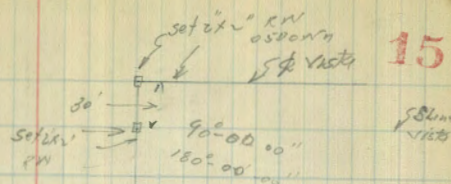 set 2"x2" RW
15
℄ Vista
30'
set 2x2
RW
90°-00'00"
180°-00'00"
Vista